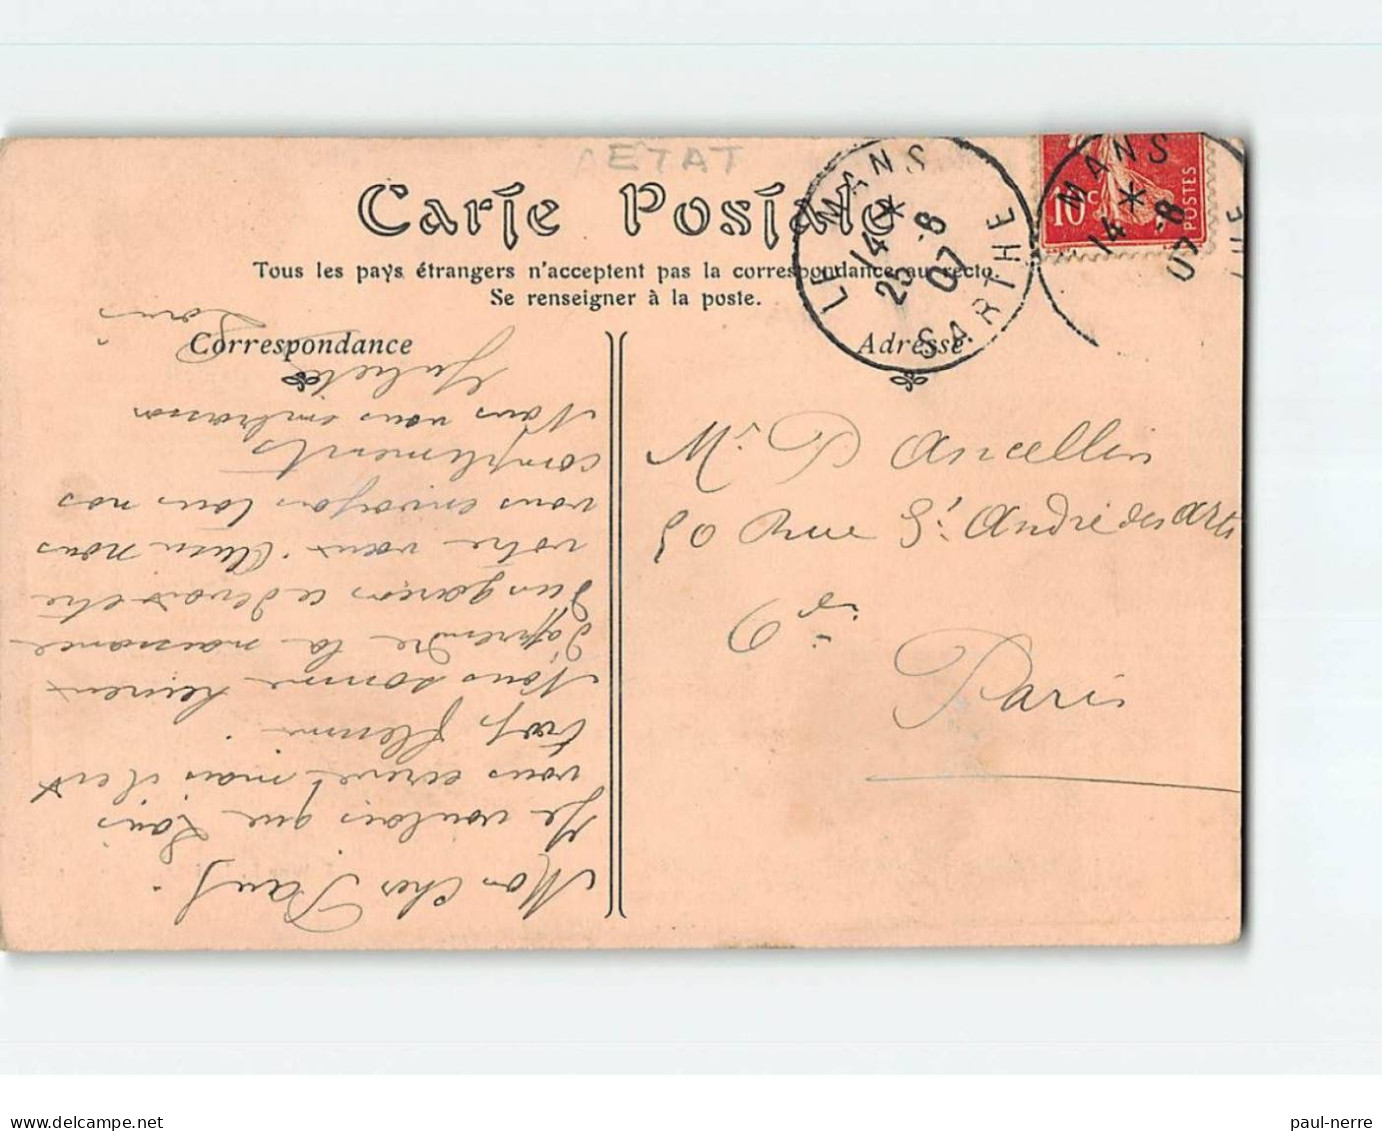 ETAT
Carte Postale
Tous les pays étrangers n'acceptent pas la correspondance au recto.
Se renseigner à la poste.
Correspondance
Adresse
LE MANS
14 *
25 -8
07
SARTHE
MANS
14 *
-8
07
10c
POSTES
Mon cher Paul.
Je voulais que Loüis
vous ecrivet mais il est
trop flemme
Nous somme heureux
d'apprendre la naissance
d'un garcon ce devait etre
votre vœux. Chien nous
vous envoyons tous nos
compliments
Nous vous embrasson
Juliette
Loüis
Mr P Ancellin
50 Rue St André des arts
Paris
www.delcampe.net
paul-nerre